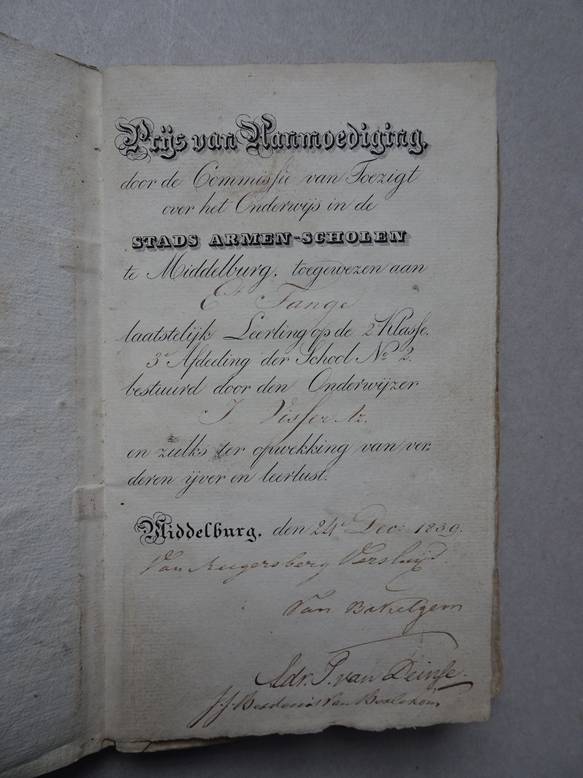 Prijs van Aanmoediging,
door de Commissie van Toezigt
over het Onderwijs in de
STADS ARMEN-SCHOLEN
te Middelburg, toegewezen aan
Tange
laatstelijk Leerling op de 2e Klasse,
3e Afdeeling der School No. 2.
bestuurd door den Onderwijzer
J Visser Az.
en zulks ter opwekking van ver,
deren ijver en leerlust.
Middelburg, den 24e Dec: 1839.
Van
Van
Adr. P. van Deinse
J. J. van